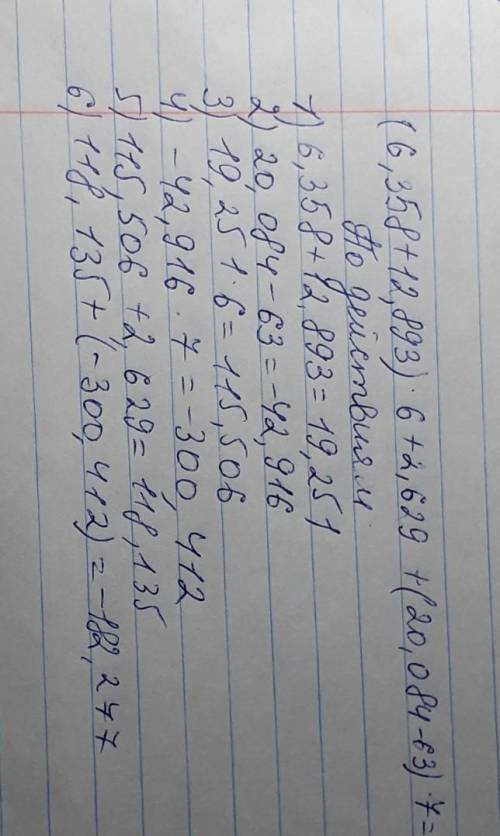 (6,358+12,893)·6+2,629+(20,084-63)·7=
По действиям
1) 6,358+12,893=19,251
2) 20,084-63=-42,916
3) 19,251·6=115,506
4) -42,916·7=-300,412
5) 115,506+2,629=118,135
6) 118,135+(-300,412)=-182,277